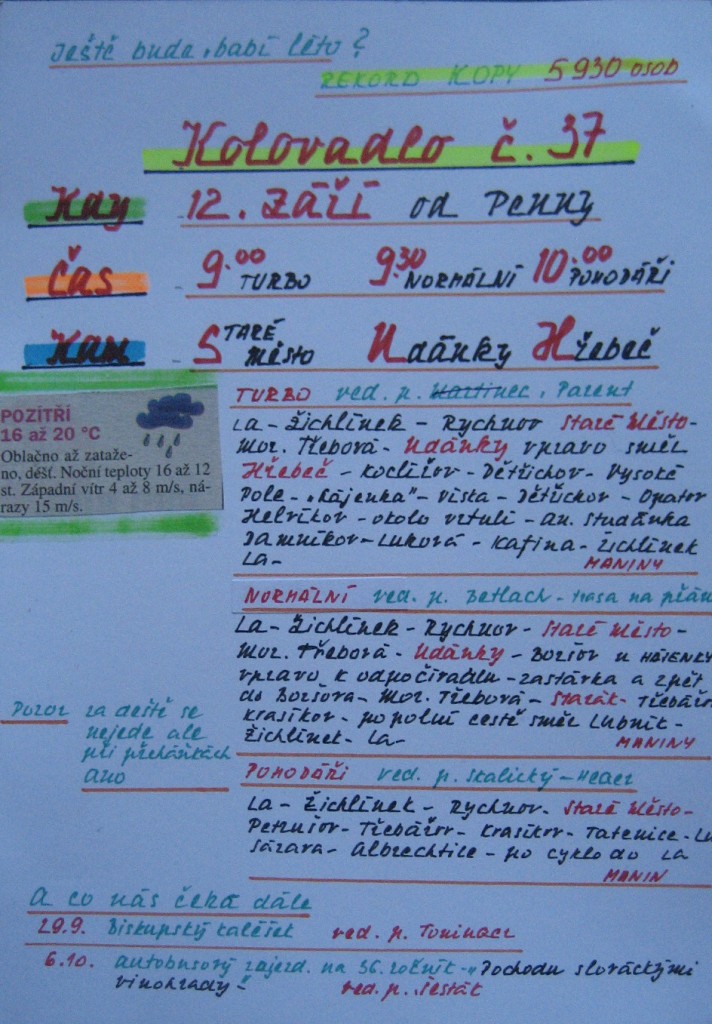 Ještě bude „babí léto?
REKORD KOPY 5930 OSOB
Kolovadlo č. 37
Kdy 12. Září od Penny
Čas 9.00 TURBO 9.30 NORMÁLNÍ 10.00 POHODÁŘI
Kam STARÉ Město Udánky Hřebeč
POZÍTŘÍ
16 až 20 °C
Oblačno až zataže-
no, déšť. Noční teploty 16 až 12
st. Západní vítr 4 až 8 m/s, ná-
razy 15 m/s.
TURBO ved. p. Martinec, Parent
La - Žichlínek - Rychnov Staré Město-
Mor. Třebová - Udánky vpravo směr
Hřebeč - Koclířov - Dětřichov - Vysoké
Pole - „Kájenka" - Vista - Dětřichov - Opatov
Helvíkov - okolo vrtuli - an. studánka
Damníkov - Luková - Kafina - Žichlínek
La-
MANINY
NORMÁLNÍ ved. p. Betlach - trasa na přán
La - Žichlínek - Rychnov - Staré Město -
Mor. Třebová - Udánky - Boršov u HÁJENKY
vpravo k odpočivadlu - zastávka a zpět
do Boršova - Mor. Třebová - Starák - Třebářov
Krasíkov - po polní cestě směr Lubník -
Žichlínek - La-
MANINY
Pozor za deště se
nejede ale
při přeháňkách
ano
POHODÁŘI ved. p. Skalický -
La - Žichlínek - Rychnov - Staré Město-
Petrušov - Třebářov - Krasíkov - Tatenice - Lu
Sázava - Albrechtice - po cyklo do La
MANIN
A co nás čeká dále
29.9. Biskupský kaléšek ved. p.
6.10. autobusový zájezd. na 36. ročník - „Pochodu slováckými
vinohrady"
ved. p. Šesták